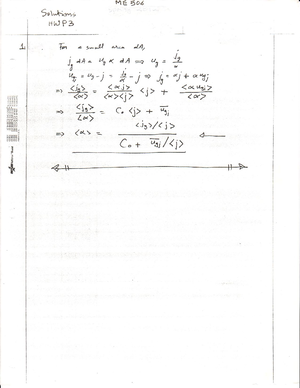 ME 506
Solutions
HWP3
1. For a small area dA,
j_g dA = u_g α dA ⇒ u_g = j_g/α
u_gj = u_g - j = j_g/α - j ⇒ j_g = αj + α u_gj
⇒ <j_g>/<α> = <αj>/<α><j> <j> + <α u_gj>/<α>
⇒ <j_g>/<α> = C_o <j> + \overline{u_gj}
⇒ <α> = <j_g>/<j> / C_o + \overline{u_gj}/<j>